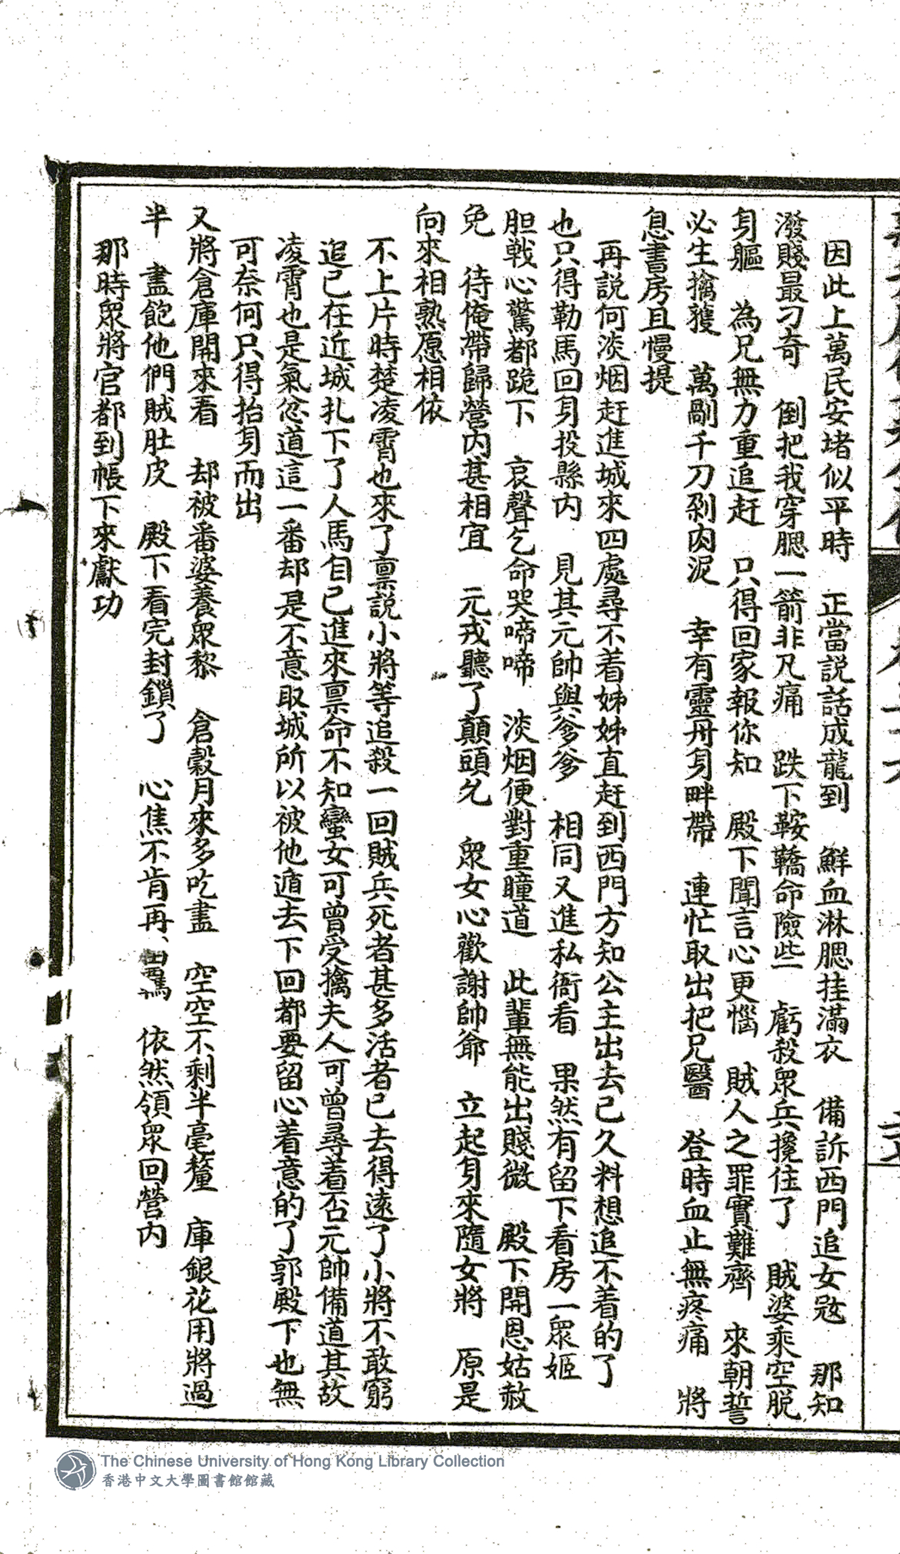 因此上萬民安堵似平時　正當説話成龍到　鮮血淋腮挂滿衣　備訴西門追女寇　那知
潑賤最刁奇　倒把我穿腮一箭非凡痛　跌下鞍鞽命險些　虧殺衆兵攙住了　賊婆乘空脱
身軀　為兄無力重追赶　只得回家報你知　殿下聞言心更惱　賊人之罪實難齊　來朝誓
必生擒獲　萬剮千刀剁肉泥　幸有靈丹身畔帶　連忙取出把兄醫　登時血止無疼痛　將
息書房且慢提
再説何淡烟赶進城來四處尋不着姊姊直赶到西門方知公主出去已久料想追不着的了
也只得勒馬回身投縣内　見其元帥與爹爹　相同又進私衙看　果然有留下看房一衆姬
胆戰心驚都跪下　哀聲乞命哭啼啼　淡烟便對重瞳道　此輩無能出賤微　殿下開恩姑赦
免　待俺帶歸營内甚相宜　元戎聽了顛頭允　衆女心歡謝帥爺　立起身來隨女將　原是
向來相熟愿相依
不上片時楚凌霄也來了禀説小將等追殺一回賊兵死者甚多活者已去得遠了小將不敢窮
追已在近城扎下了人馬自己進來禀命不知蠻女可曾受擒夫人可曾尋着否元帥備道其故
凌霄也是氣忿道這一番却是不意取城所以被他遁去下回都要留心着意的了郭殿下也無
可奈何只得抬身而出
又將倉庫開來看　却被番婆養衆黎　倉穀月來多吃盡　空空不剩半毫釐　庫銀花用將過
半　盡飽他們賊肚皮　殿下看完封鎖了　心焦不肯再　依然領衆回營内
那時衆將官都到帳下來獻功
The Chinese University of Hong Kong Library Collection
香港中文大學圖書館館藏